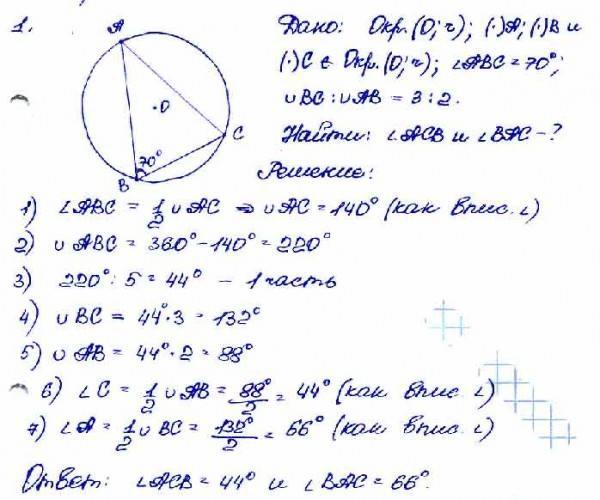 1.
A
O
C
B
70°
Дано: Окр.(O; r); (·)A; (·)B и
(·)C ∈ Окр.(O; r); ∠ABC = 70°;
∪BC : ∪AB = 3 : 2.
Найти: ∠ACB и ∠BAC - ?
Решение:
1) ∠ABC = 1/2 ∪AC ⇒ ∪AC = 140° (как впис. ∠)
2) ∪ ABC = 360° - 140° = 220°
3) 220° : 5 = 44° - 1 часть
4) ∪ BC = 44°·3 = 132°
5) ∪ AB = 44°·2 = 88°
6) ∠C = 1/2 ∪AB = 88°/2 = 44° (как впис. ∠)
7) ∠A = 1/2 ∪BC = 132°/2 = 66° (как впис. ∠)
Ответ: ∠ACB = 44° и ∠BAC = 66°.